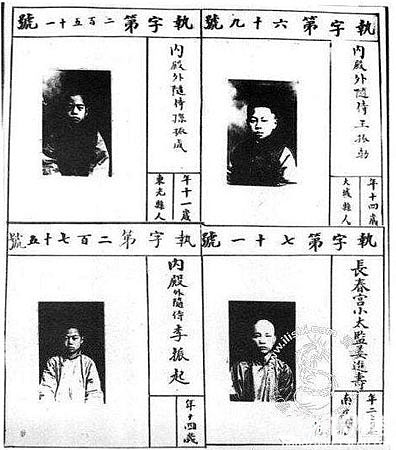 執字第六十九號
內殿外隨侍王振
年十四歲
大城縣人
執字第二百五十一號
內殿外隨侍孫振
年十一歲
東光縣人
執字第七十一號
長春宮小太監姜進壽
年二
南
執字第二百七十五號
內殿外隨侍李振起
年十四歲